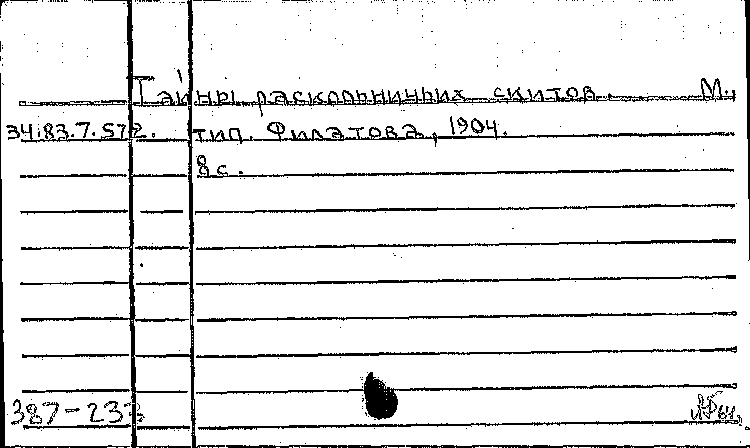 Тайны раскольничьих скитов. М.,
34:83.7.572. тип. Филатова, 1904.
8 с.
387-233